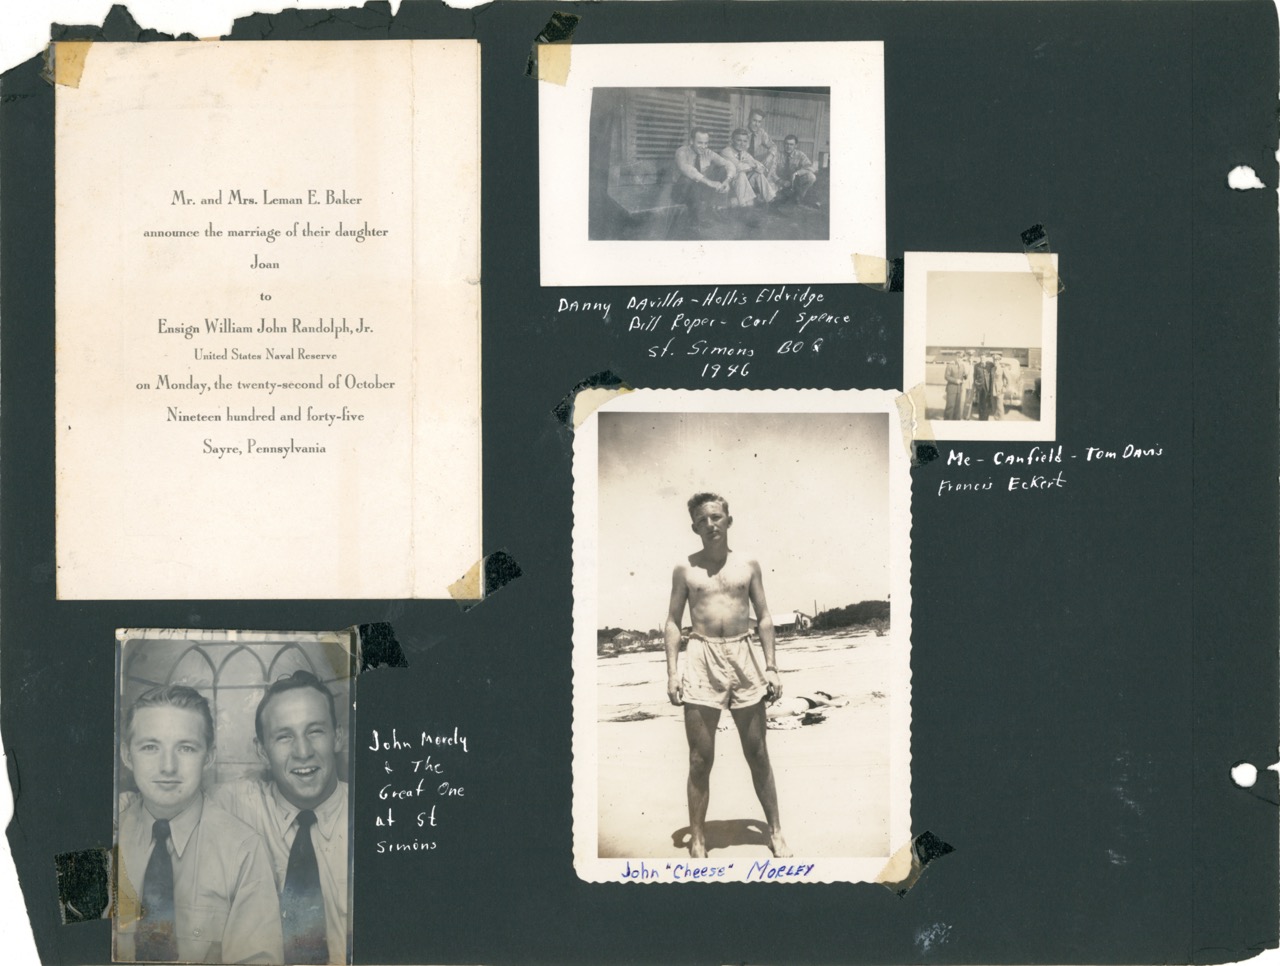 Mr. and Mrs. Leman E. Baker
announce the marriage of their daughter
Joan
to
Ensign William John Randolph, Jr.
United States Naval Reserve
on Monday, the twenty-second of October
Nineteen hundred and forty-five
Sayre, Pennsylvania
Danny Davilla - Hollis Eldridge
Bill Roper - Carl Spence
St. Simons BOQ
1946
Me - Canfield - Tom Davis
Francis Eckert
John Morely
& The
Great One
at St
Simons
John "Cheese" MORLEY